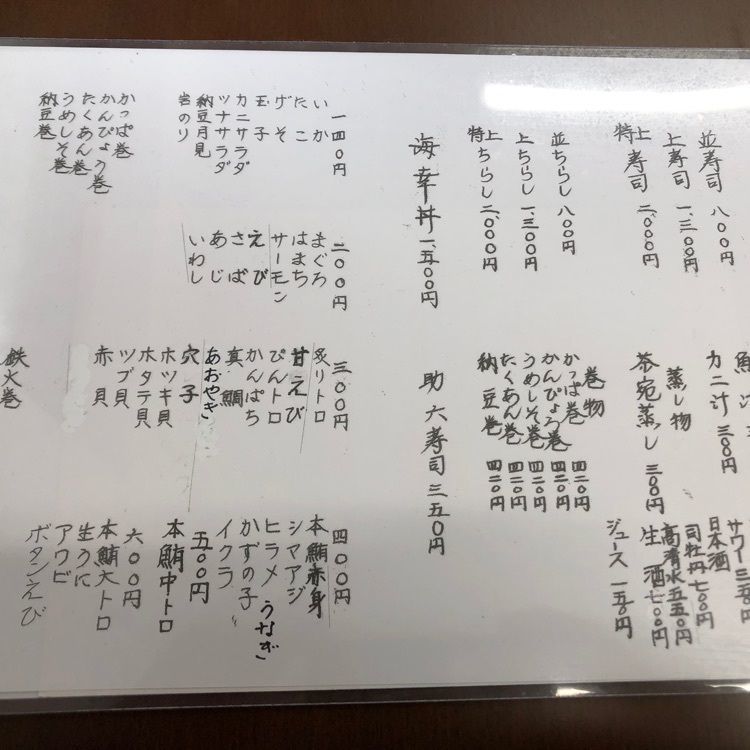 並寿司 八〇〇円
上寿司 一、三〇〇円
特上寿司 二、〇〇〇円
並ちらし 八〇〇円
上ちらし 一、三〇〇円
特上ちらし 二、〇〇〇円
海幸丼 一、五〇〇円
カニ汁 三〇〇円
蒸し物
茶宛蒸し 三〇〇円
巻物
かっぱ巻 四二〇円
かんぴょう巻 四二〇円
うめしそ巻 四二〇円
たくあん巻 四二〇円
納豆巻 四二〇円
助六寿司 三五〇円
サワー 三五〇円
日本酒
司牡丹 七〇〇円
高清水 五五〇円
生酒 七〇〇円
ジュース 一五〇円
一四〇円
いか
たこ
げそ
玉子
カニサラダ
ツナサラダ
納豆月見
岩のり
かっぱ巻
かんぴょう巻
たくあん巻
うめしそ巻
納豆巻
二〇〇円
まぐろ
はまち
サーモン
えび
さば
あじ
いわし
三〇〇円
炙りトロ
甘えび
びんトロ
かんぱち
真鯛
あおやぎ
穴子
ホッキ貝
ホタテ貝
ツブ貝
赤貝
鉄火巻
四〇〇円
本鮪赤身
シマアジ
ヒラメ うなぎ
かずの子
イクラ
五〇〇円
本鮪中トロ
六〇〇円
本鮪大トロ
生うに
アワビ
ボタンえび